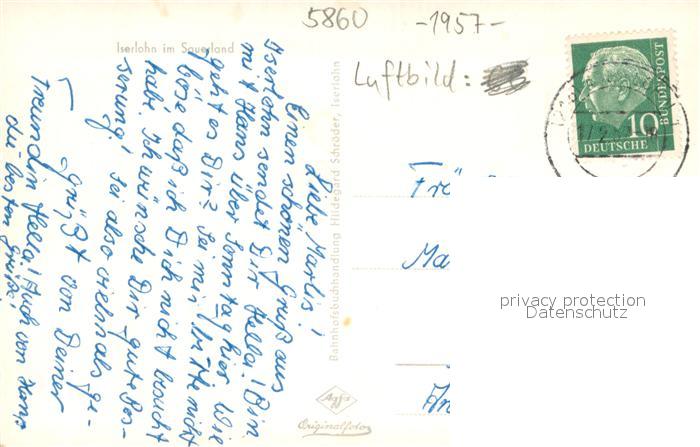 5860 -1957-
Luftbild:
Iserlohn im Sauerland
BUNDESPOST
10
DEUTSCHE
Liebe Marlis!
Einen schönen Gruß aus
Iserlohn sendet Dir Hella! Bin
mit Hans über Sonntag hier. Wie
geht es Dir? Sei mir bitte nicht
böse daß ich Dich nicht besucht
habe. Ich wünsche Dir gute Bes-
serung! Sei also vielmals ge-
grüßt von Deiner
Freundin Hella! Auch von Hans
die besten Grüße!
Bahnhofsbuchhandlung Hildegard Schröder, Iserlohn
Agfa
Originalfoto
Frö
Ma
An
privacy protection
Datenschutz